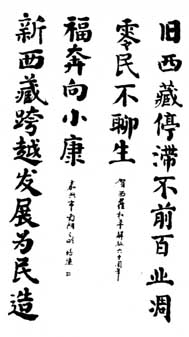 旧西藏停滞不前百业凋
零民不聊生
贺西藏和平解放六十周年
新西藏跨越发展为民造
福奔向小康